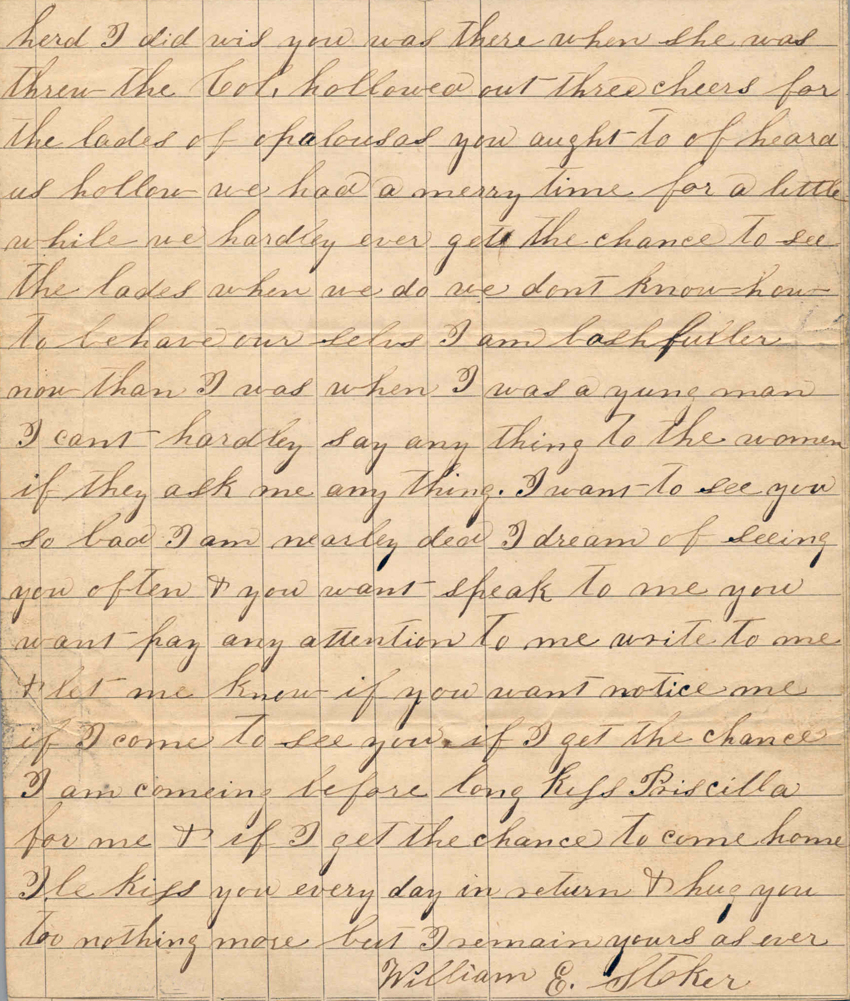 herd I did wis you was there when she was
threw the Col, hollowed out three cheers for
the lades of opalousas you aught to of heard
us hollow we had a merry time for a little
while we hardley ever get the chance to see
the lades when we do we dont know how
to behave our selvs I am bashfuller
now than I was when I was a yung man
I cant hardley say any thing to the women
if they ask me any thing. I want to see you
so bad I am nearley ded I dream of seeing
you often & you want speak to me you
want pay any attention to me write to me
& let me know if you want notice me
if I come to see you. if I get the chance
I am comeing before long kiss Priscilla
for me & if I get the chance to come home
I,le kiss you every day in return & hug you
too nothing more but I remain yours as ever
William E. Stoker